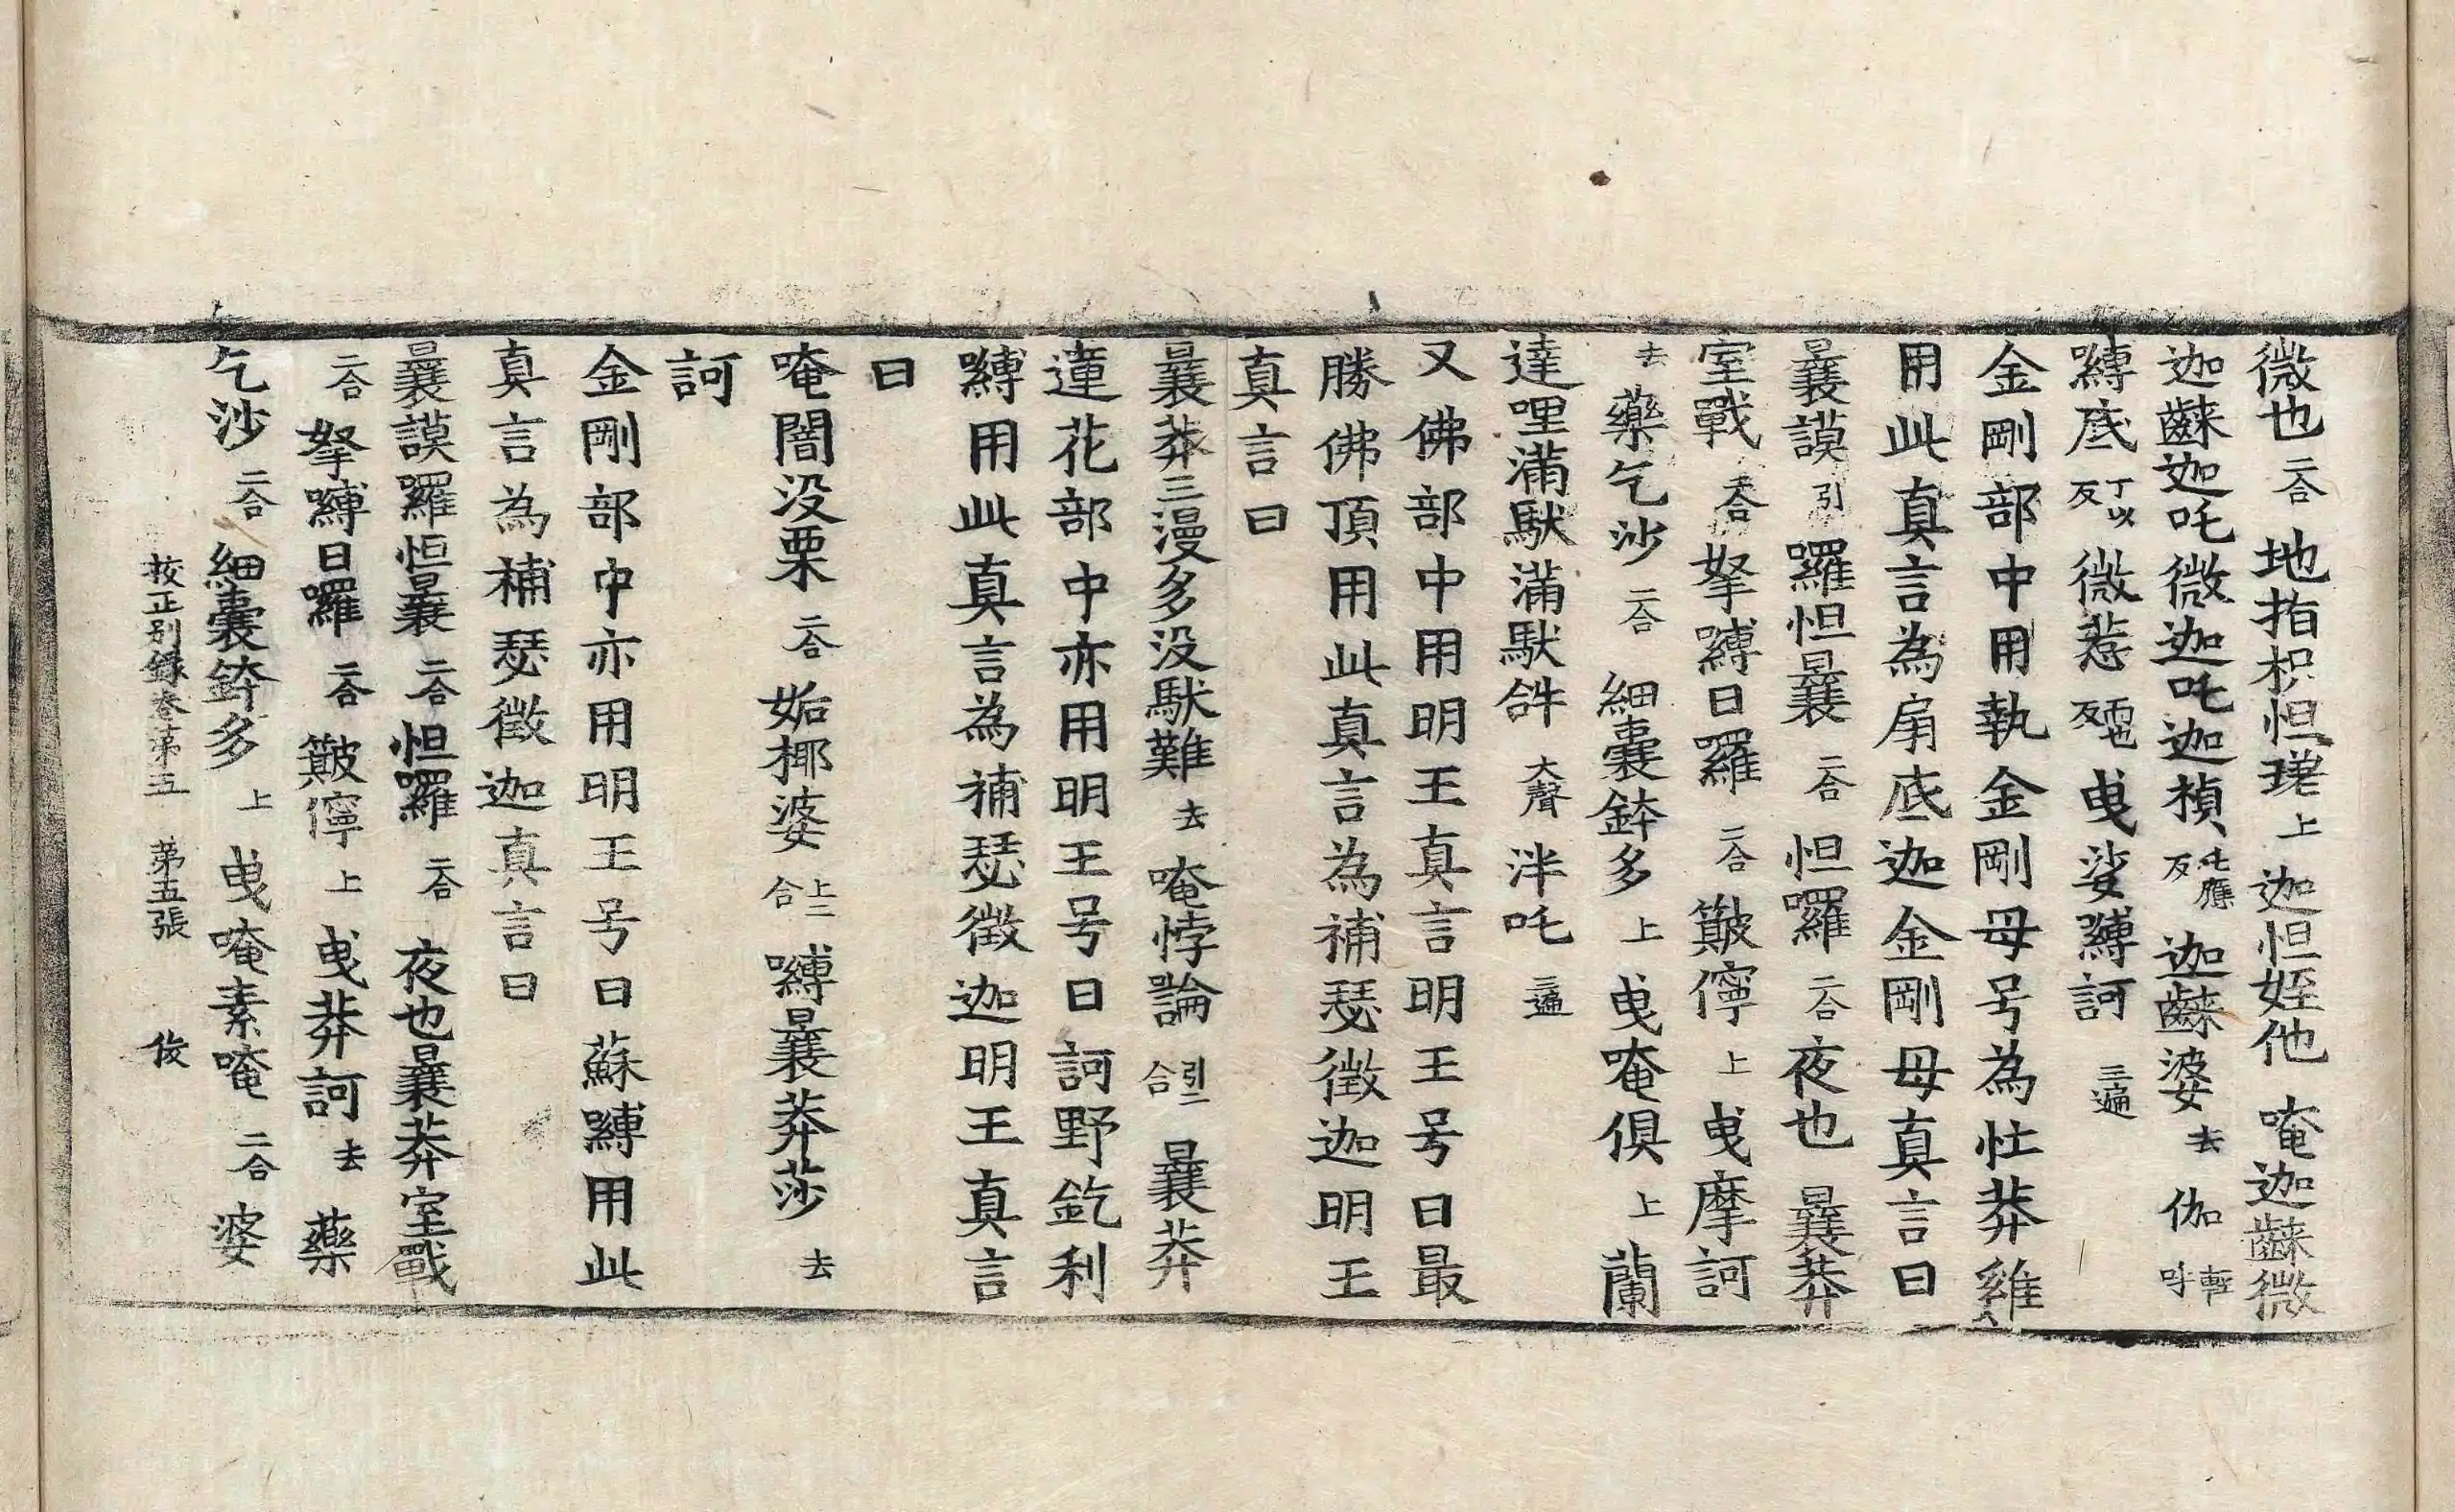 微也二合地指枳怛㻮上迦怛姪他唵迦𪘨微
迦𪘨迦吒微迦吒迦楨吒應反迦𪘨婆去伽輕呼
嚩底丁以反微惹曳娑嚩訶三遍
金剛部中用執金剛母号為忙莽雞
用此真言為扇底迦金剛母真言曰
曩謨引囉怛曩二合怛囉二合夜也曩莽
室戰二合拏嚩日羅二合簸儜上曳摩訶
去藥乞沙二合細曩鉢多上曳唵俱上蘭
達哩滿馱滿馱𤙖大聲泮吒三遍
又佛部中用明王真言明王号曰最
勝佛頂用此真言為補瑟徵迦明王
真言曰
曩莽三漫多没馱難去唵悖論引二合曩莽
蓮花部中亦用明王号曰訶野釳利
嚩用此真言為補瑟徵迦明王真言
曰
唵闇没栗二合妬椰婆上二合嚩曩莽莎去
訶
金剛部中亦用明王号曰蘇嚩用此
真言為補瑟徵迦真言曰
曩謨囉怛曩二合怛囉二合夜也曩莽室戰
二合拏嚩日囉二合簸儜上曳莽訶去藥
乞沙二合細曩鉢多上曳唵素唵二合婆
校正别錄卷第五 第五張 俊